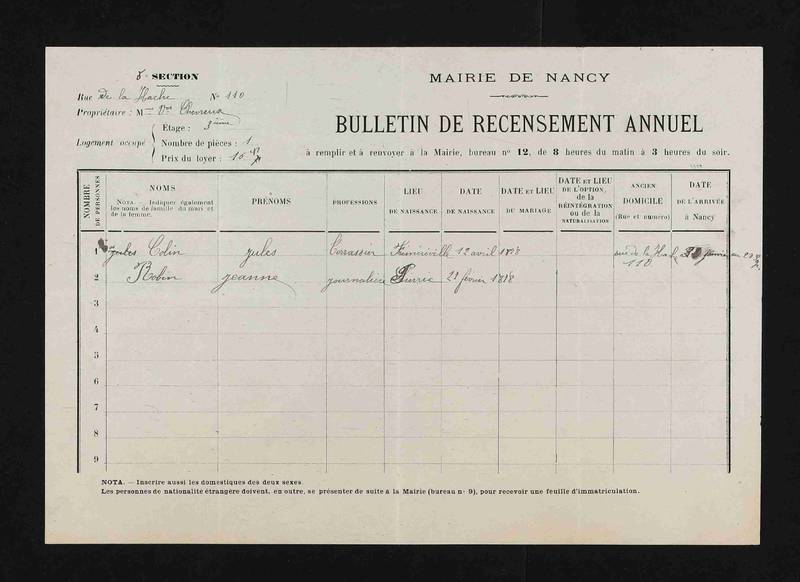 5e SECTION
Rue de la Hache No 110
Propriétaire : Mme Vve Chevreux
Logement occupé
Étage : 3ième
Nombre de pièces : 1
Prix du loyer : 10
MAIRIE DE NANCY
BULLETIN DE RECENSEMENT ANNUEL
à remplir et à renvoyer à la Mairie, bureau no 12, de 8 heures du matin à 3 heures du soir.
NOMBRE DE PERSONNES
NOMS
NOTA. — Indiquer également les noms de famille du mari et de la femme.
PRÉNOMS
PROFESSIONS
LIEU DE NAISSANCE
DATE DE NAISSANCE
DATE ET LIEU DU MARIAGE
DATE ET LIEU DE L'OPTION, de la RÉINTÉGRATION ou de la NATURALISATION
ANCIEN DOMICILE (Rue et numéro)
DATE DE L'ARRIVÉE à Nancy
1 jules Colin jules Terrassier 12 avril rue de la Hach 110
2 Robin jeanne journalière Pierre 21 février
3
4
5
6
7
8
9
NOTA. — Inscrire aussi les domestiques des deux sexes.
Les personnes de nationalité étrangère doivent, en outre, se présenter de suite à la Mairie (bureau no 9), pour recevoir une feuille d'immatriculation.